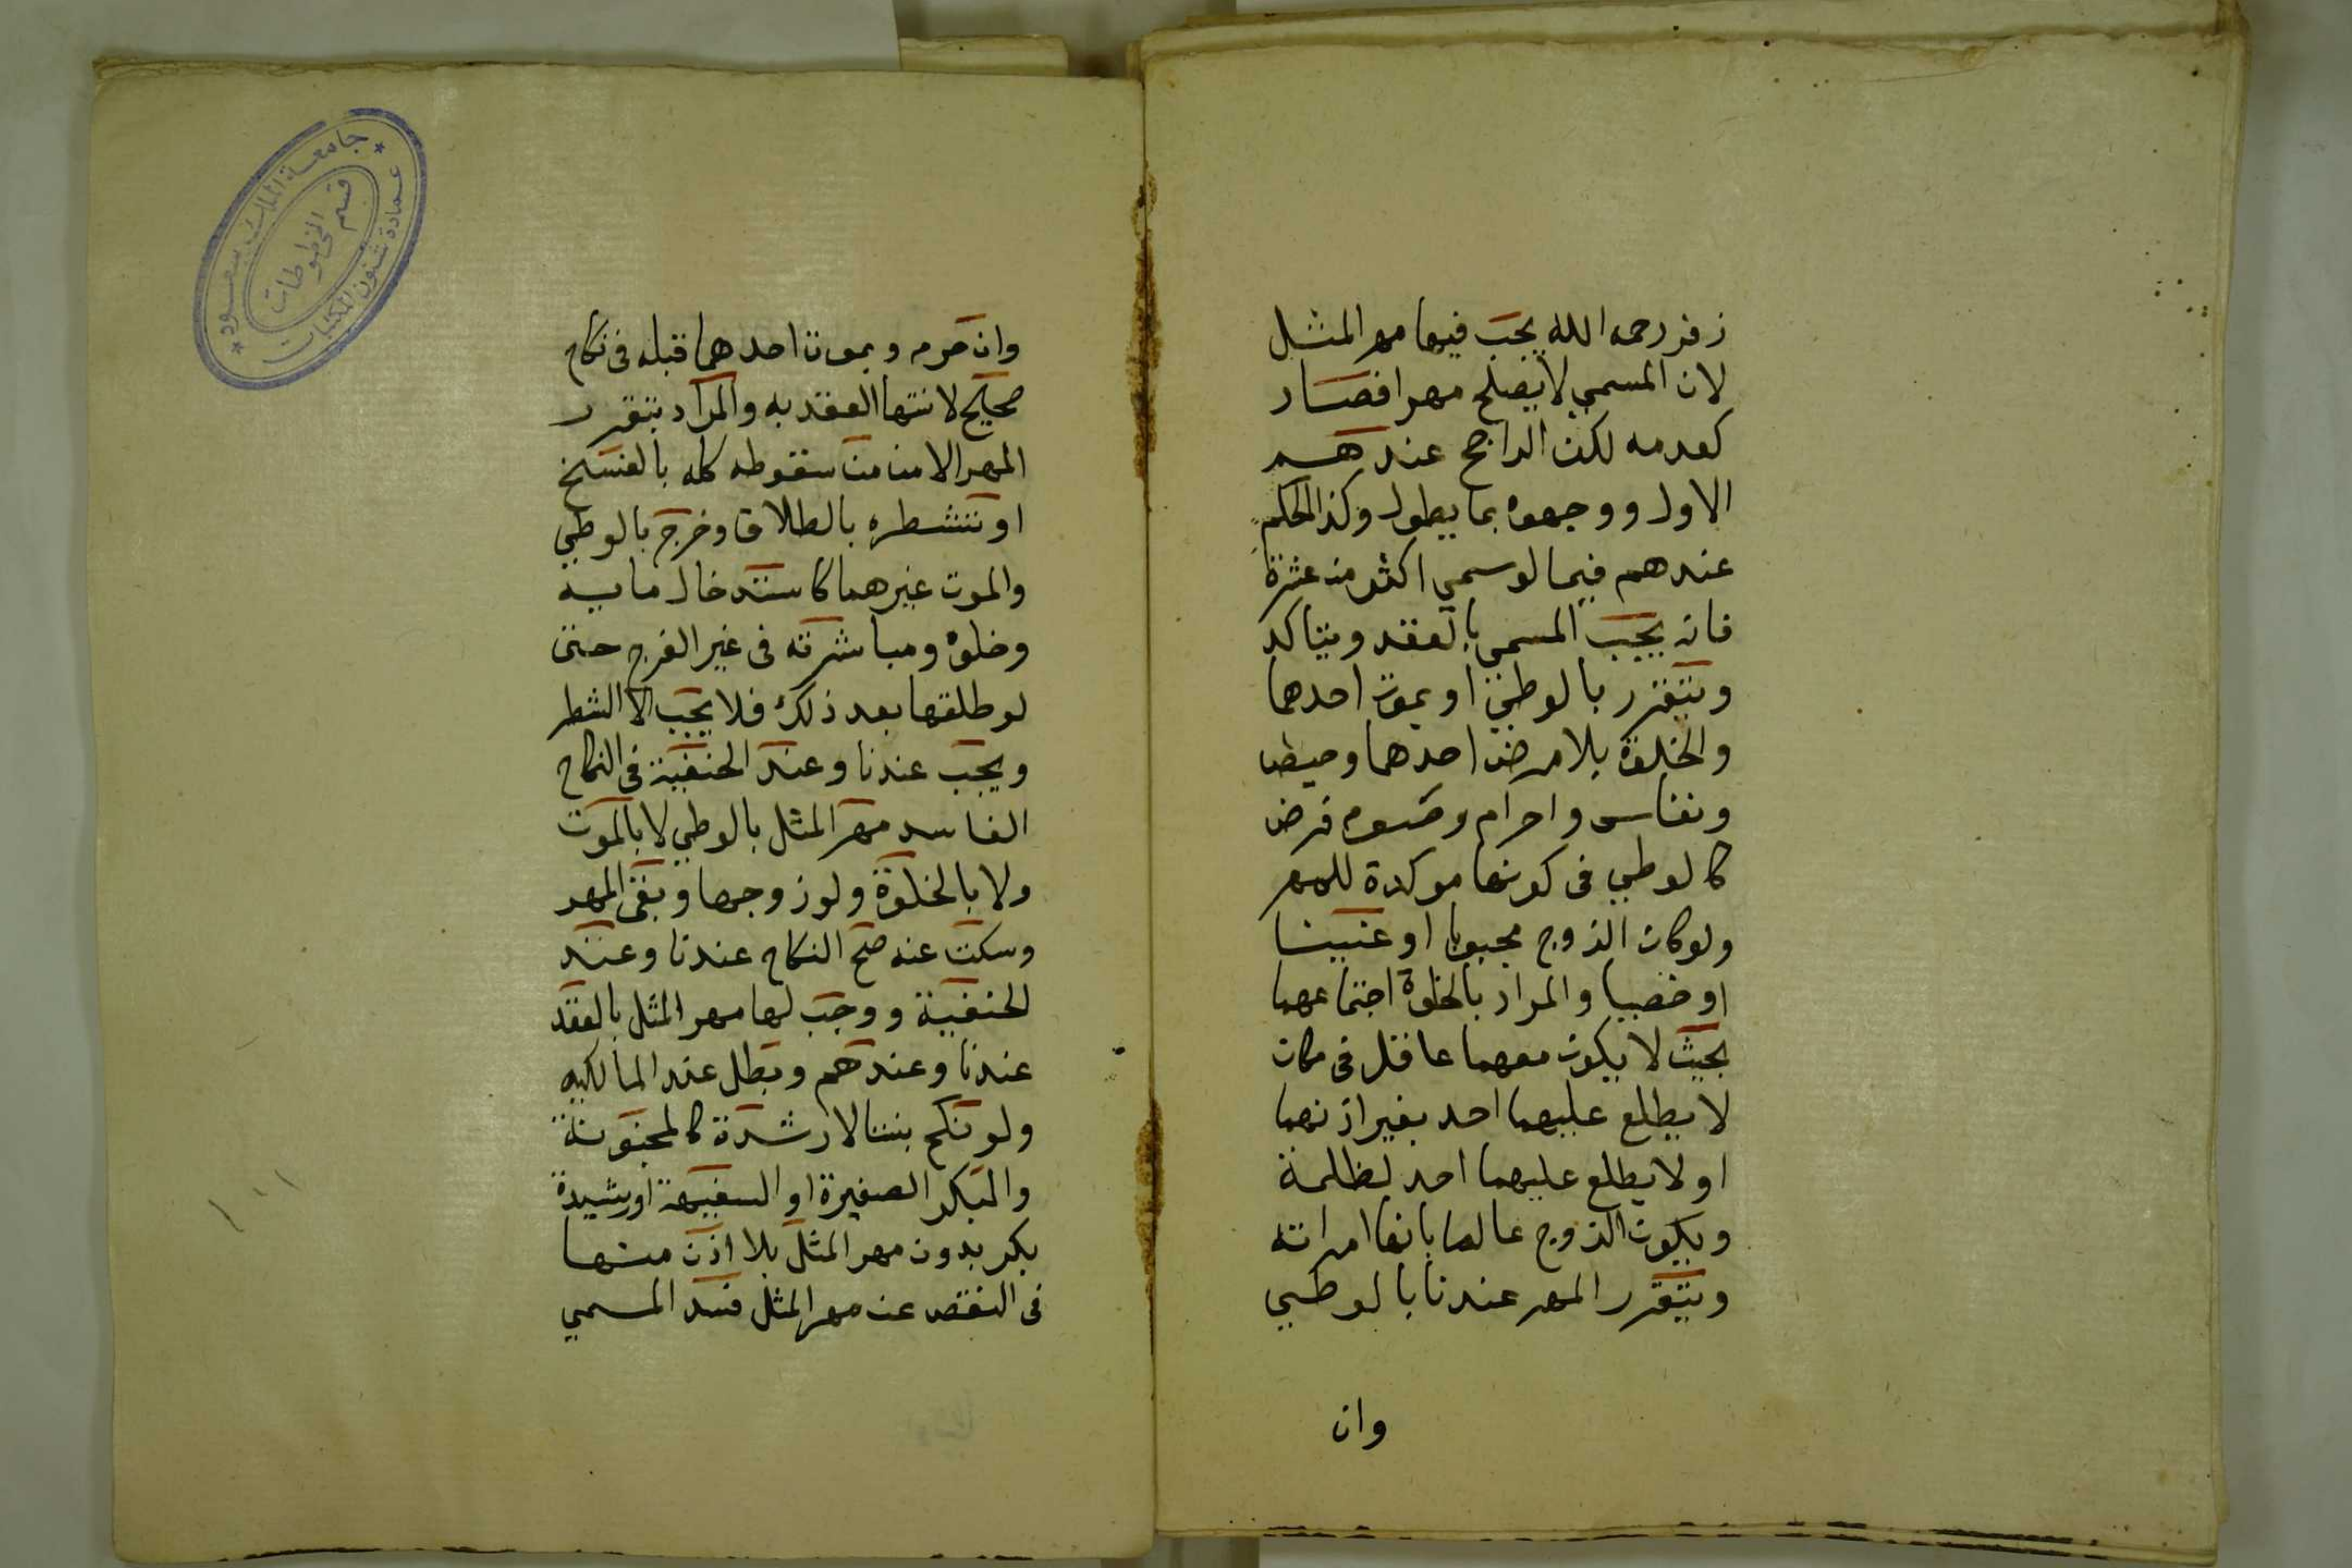 زفر رحمه الله يجب فيها مهر المثل
لان المسمي لا يصلح مهرا فصار
كعدمه لكن الراجح عندهم
الاول ووجهوه بما يطول وكذا الحكم
عندهم فيما لو سمي اكثر من عشرة
فانه يجب المسمي بالعقد ويتاكد
ويتقرر بالوطئ او بموت احدهما
والخلوة بلا مرض احدهما وحيض
ونفاس واحرام وصوم فرض
كالوطي في كونها موكدة للمهر
ولو كان الزوج مجبوبا او عنينا
او خصيا والمراد بالخلوة اجتماعهما
بحيث لا يكون معهما عاقل في مكان
لا يطلع عليهما احد بغير اذنهما
او لا يطلع عليهما احد لظلمة
ويكون الزوج عالما بانها امراته
ويتقرر المهر عندنا بالوطي
وان
وان حرم وبموت احدهما قبله في نكاح
صحيح لانتها العقد به والمراد بتقرر
المهر الامن من سقوطه كله بالفسخ
او تشطره بالطلاق وخرج بالوطي
والموت غيرهما كاستدخال مايه
وخلوة ومباشرته في غير الفرج حتى
لو طلقها بعد ذلك فلا يجب الا الشطر
ويجب عندنا وعند الحنفية في النكاح
الفاسد مهر المثل بالوطي لا بالموت
ولا بالخلوة ولو زوجها ونفى المهر
وسكت عنه صح النكاح عندنا وعند
الحنفية ووجب لها مهر المثل بالعقد
عندنا وعندهم وبطل عند المالكيه
ولو نكح بنتا لا رشدة كالمجنونة
والبكر الصغيرة او السفيهة او رشيدة
بكر بدون مهر المثل بلا اذن منها
في النقص عن مهر المثل فسد المسمي
جامعة الملك سعود
قسم المخطوطات
عمادة شئون المكتبات